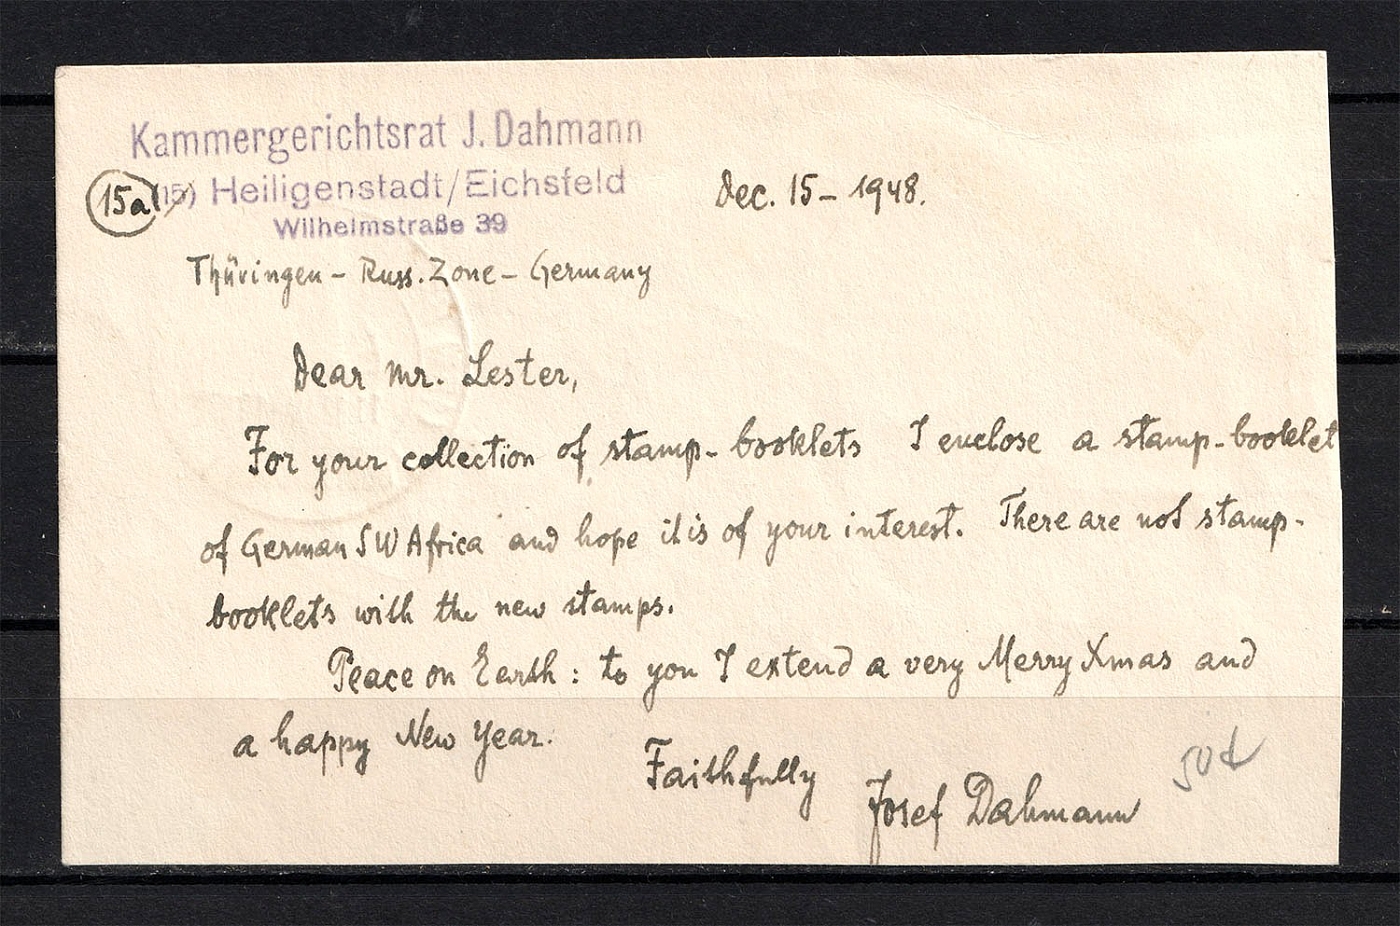 Kammergerichtsrat J. Dahmann
15a (15) Heiligenstadt/Eichsfeld
Wilhelmstraße 39
Dec. 15 – 1948.
Thüringen – Russ. Zone – Germany
Dear Mr. Lester,
For your collection of stamp-booklets I enclose a stamp-booklet
of German SW Africa and hope it is of your interest. There are not stamp-
booklets with the new stamps.
Peace on Earth: to you I extend a very Merry Xmas and
a happy New Year.
Faithfully
Josef Dahmann